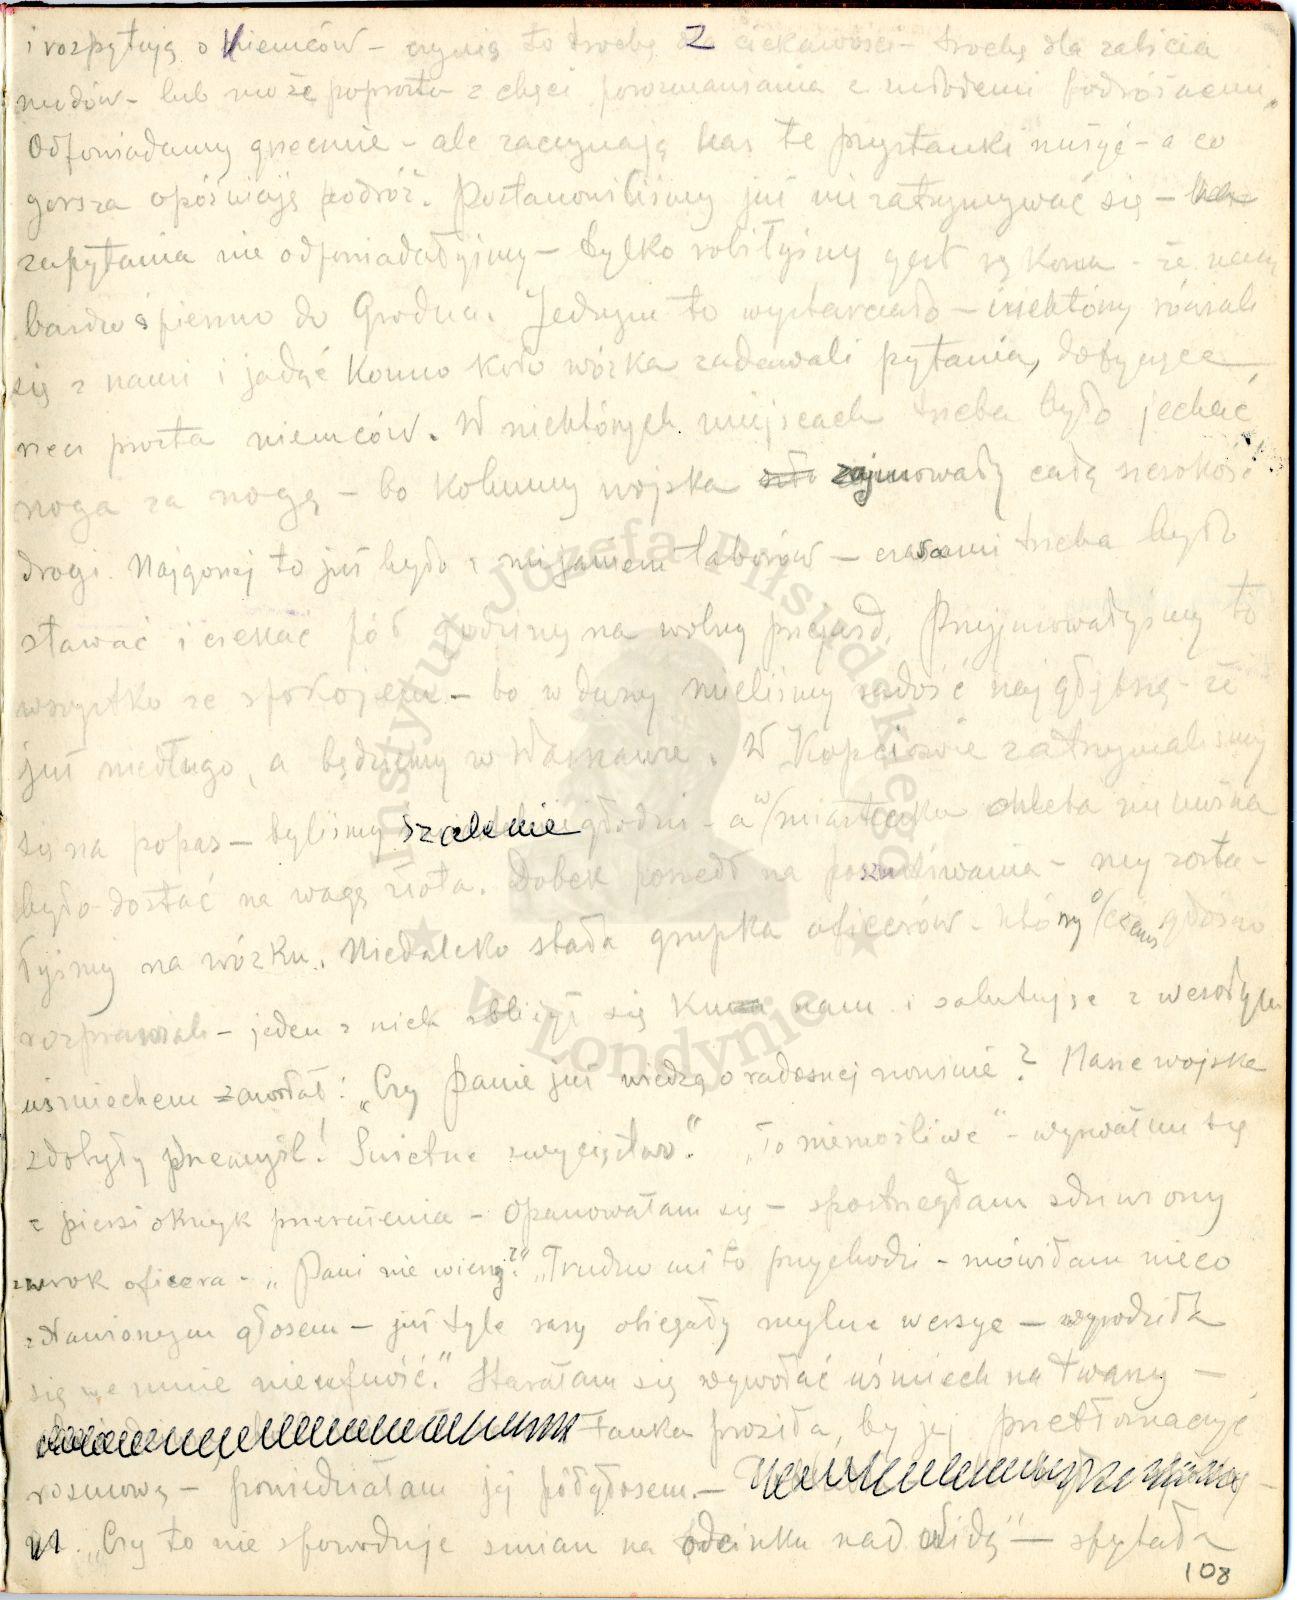 i rozpytują o Niemców – czynią to trochę z ciekawości – trochę dla zabicia
nudów – lub może poprostu z chęci porozmawiania z młodemi podróżnemi.
Odpowiadamy grzecznie – ale zaczynają nas te przystanki nużyć – a co
gorsza opóźniają podróż. Postanowiliśmy już nie zatrzymywać się –
zapytania nie odpowiadałyśmy – tylko robiłyśmy gest ręką – że nam
bardzo śpieszno do Grodna. Jednym to wystarczało – niektórzy równali
się z nami i jadąć konno koło wózka zadawali pytania, dotyczące
rzecz prosta niemców. W niektórych miejscach trzeba było jechać
noga za nogą – bo kolumny wojska zajmowały całą szerokość
drogi. Najgorzej to już było z mijaniem taborów – czasami trzeba było
stawać i czekać pół godziny na wolny przejazd. Przyjmowałyśmy to
wszystko ze spokojem – bo w duszy mieliśmy radość najgłębszą – że
już niedługo, a będziemy w Warszawie. W Kopciowie zatrzymaliśmy
się na popas – byliśmy szalenie głodni – a w miasteczku chleba nie można
było dostać na wagę złota. Bobek poszedł na poszukiwania – my zosta-
łyśmy na wózku. Niedaleko stała grupka oficerów – którzy o czemś głośno
rozprawiali – jeden z nich zbliżył się ku nam i salutując z wesołym
uśmiechem zawołał: „Czy Panie już wiedzą o radosnej nowinie? Nasze wojska
zdobyły Przemyśl! Świetne zwycięstwo." „To niemożliwe" – wyrwał mi się
z piersi okrzyk przerażenia – opanowałam się – spostrzegłam zdziwiony
wzrok oficera – „Pani nie wierzy?" „Trudno mi to przychodzi – mówiłam nieco
zdławionym głosem – już tyle razy obiegały mylne wersye – wyrodziła
się we mnie nieufność." Starałam się wywołać uśmiech na twarzy –
Hanka prosiła, by jej przetłomaczyć
rozmowę – powiedziałam jej półgłosem. –
„Czy to nie spowoduje zmian na odcinku nad Nidą" – spytała
108
Instytut Józefa Piłsudskiego
w Londynie